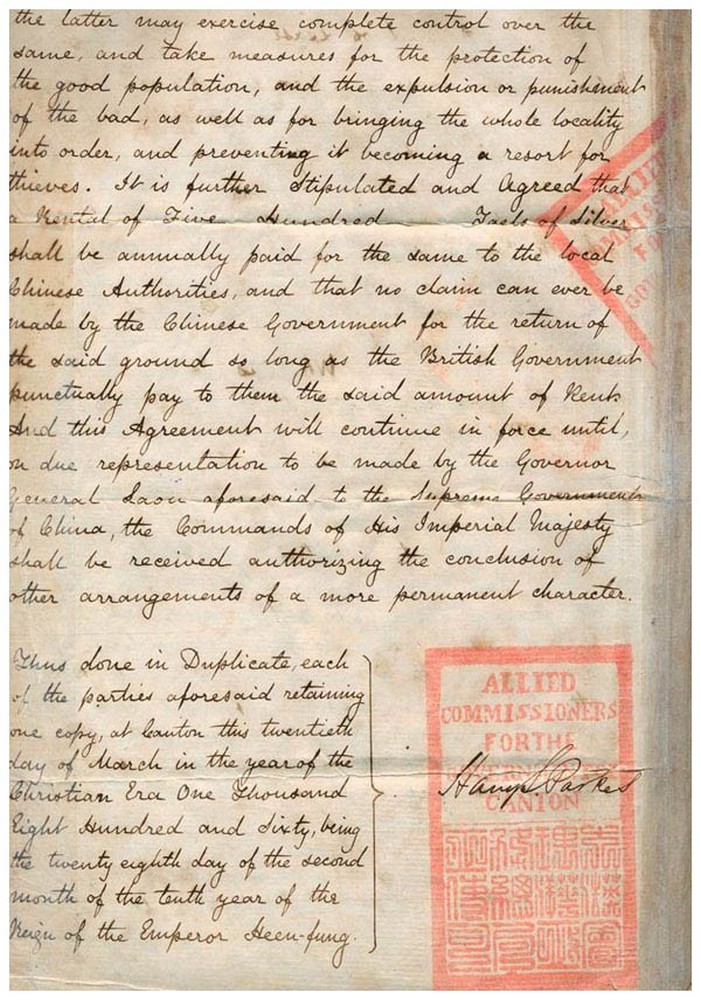 the latter may exercise complete control over the
same, and take measures for the protection of
the good population, and the expulsion or punishment
of the bad, as well as for bringing the whole locality
into order, and preventing it becoming a resort for
thieves. It is further Stipulated and Agreed that
a Rental of Five Hundred Taels of Silver
shall be annually paid for the same to the local
Chinese Authorities, and that no claim can ever be
made by the Chinese Government for the return of
the said ground so long as the British Government
punctually pay to them the said amount of Rent
And this Agreement will continue in force until,
on due representation to be made by the Governor
General Laou aforesaid to the Supreme Government
of China, the Commands of His Imperial Majesty
shall be received authorizing the conclusion of
other arrangements of a more permanent character.
Thus done in Duplicate, each
of the parties aforesaid retaining
one copy, at Canton this twentieth
day of March in the year of the
Christian Era One Thousand
Eight Hundred and Sixty, being
the twenty eighth day of the second
month of the tenth year of the
Reign of the Emperor Heen-fung.
ALLIED
COMMISSIONERS
FOR THE
Harry S. Parkes
CANTON